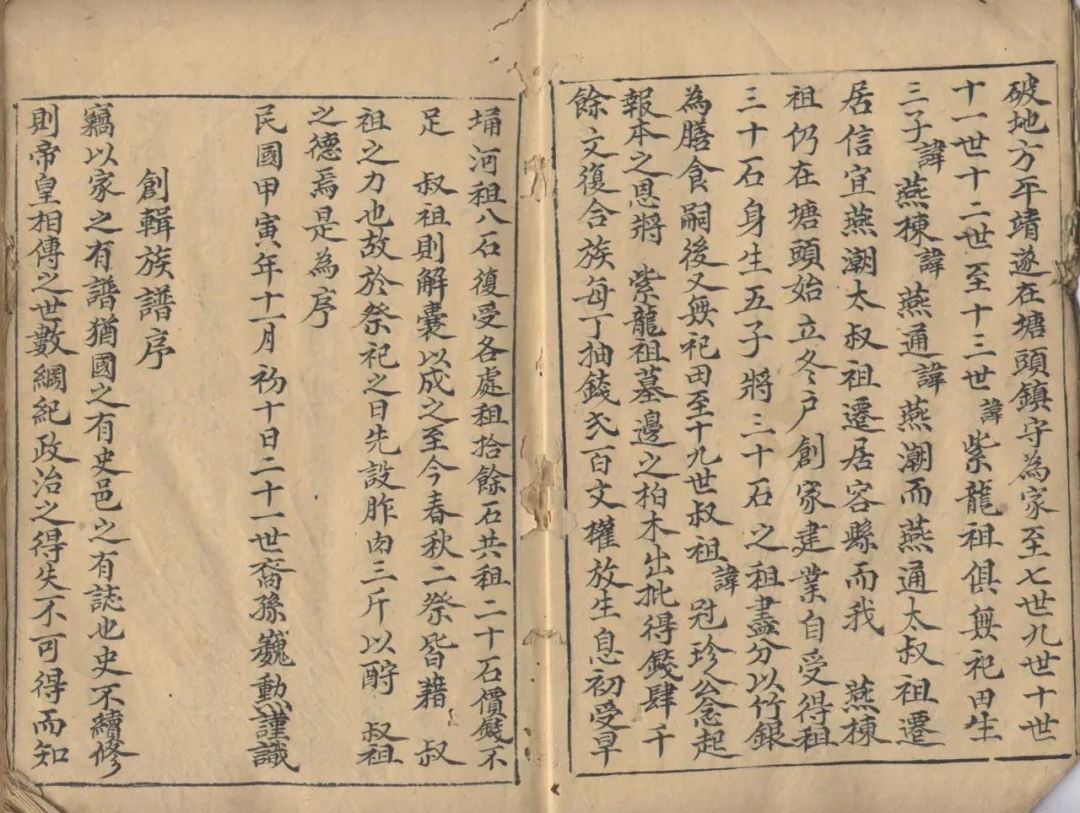 破地方平靖遂在塘頭鎮守為家至七世九世十世
十一世十二世至十三世諱紫龍祖俱無祀田生
三子諱燕棟諱燕通諱燕潮而燕通太叔祖遷
居信宜燕潮太叔祖遷居容縣而我 燕棟
祖仍在塘頭始立冬戶創家建業自受得租
三十石身生五子將三十石之租盡分以竹銀
為膳食嗣後又無祀田至十九世叔祖諱冠珍公念起
報本之恩將 紫龍祖墓邊之柏木出批得錢肆千
餘文復合族每丁抽錢弍百文權放生息初受旱
埇河祖八石復受各處租拾餘石共租二十石價錢不
足 叔祖則解囊以成之至今春秋二祭皆藉 叔
祖之力也故於祭祀之日先設胙肉三斤以酹 叔祖
之德焉是為序
民國甲寅年十一月初十日二十一世裔孫巍勳謹識
創輯族譜序
竊以家之有譜猶國之有史邑之有誌也史不續修
則帝皇相傳之世數綱紀政治之得失不可得而知